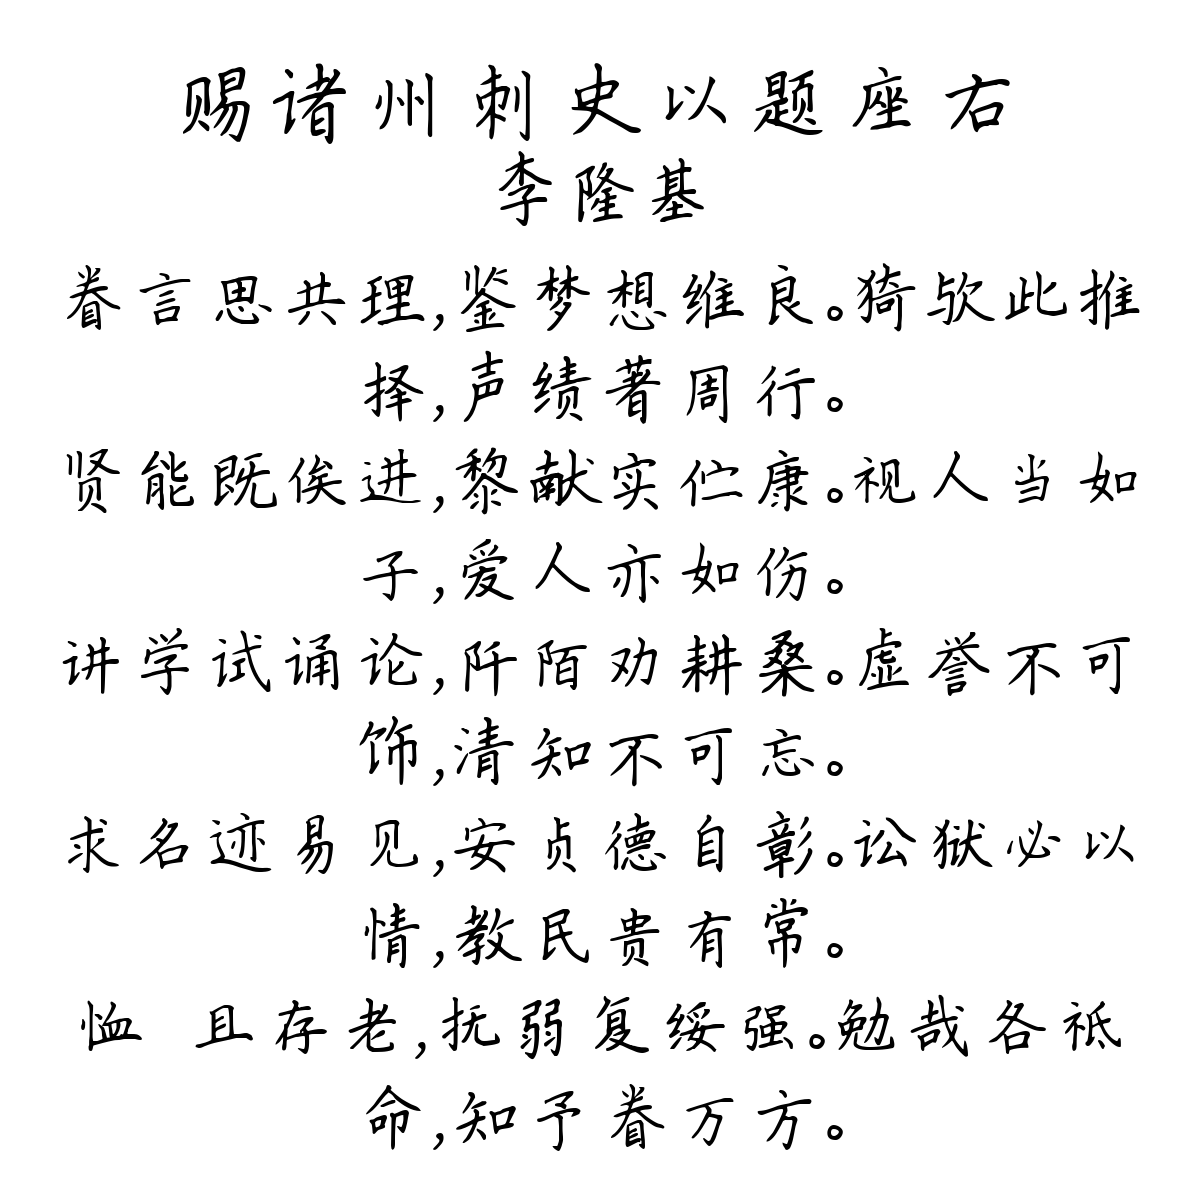 赐诸州刺史以题座右
李隆基
眷言思共理,鉴梦想维良。猗欤此推
择,声绩著周行。
贤能既俟进,黎献实伫康。视人当如
子,爱人亦如伤。
讲学试诵论,阡陌劝耕桑。虚誉不可
饰,清知不可忘。
求名迹易见,安贞德自彰。讼狱必以
情,教民贵有常。
恤 且存老,抚弱复绥强。勉哉各祗
命,知予眷万方。